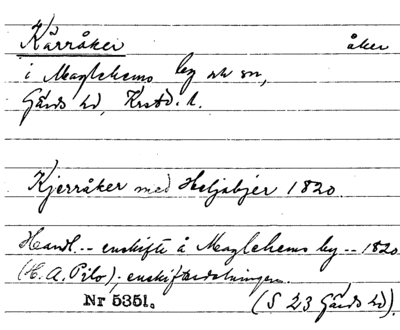 Kärråker åker
i Maglehems by och sn,
Gärds hd, Krstd. l.
Kjerråker med Heljabjer 1820.
Handl. -- enskifte å Maglehems by -- 1820
(H. A. Pilo); enskiftesdelningen.
Nr 5351.
(S 23 Gärds hd).